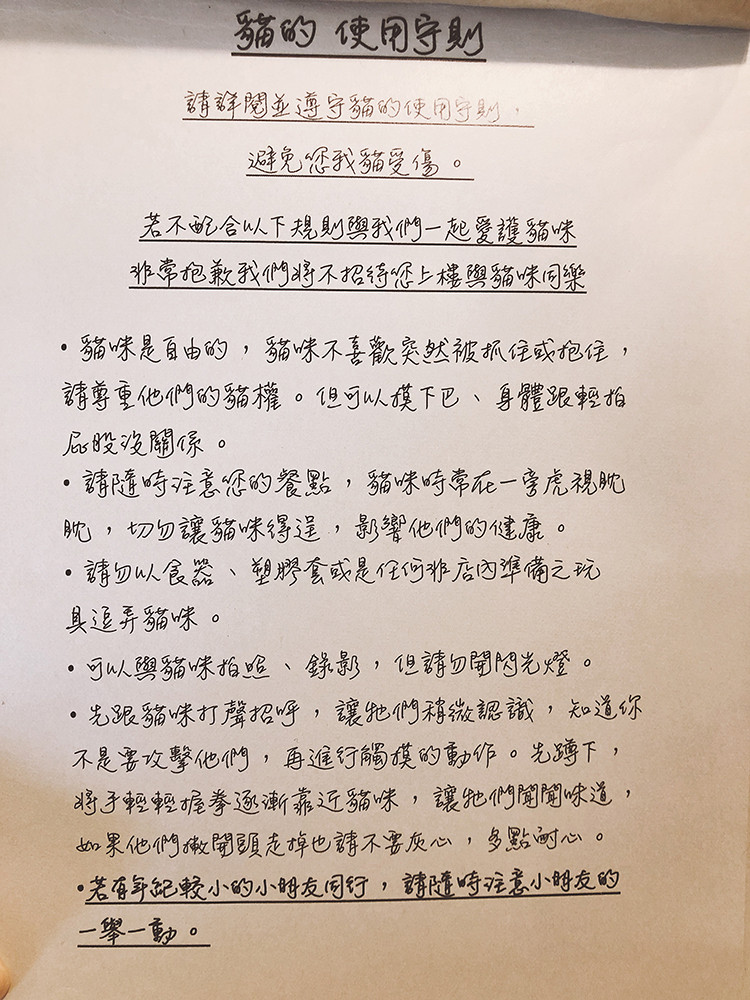 貓的 使用守則
請詳閱並遵守貓的使用守則，
避免您我貓受傷。
若不配合以下規則與我們一起愛護貓咪
非常抱歉我們將不招待您上樓與貓咪同樂
•貓咪是自由的，貓咪不喜歡突然被抓住或抱住，
請尊重他們的貓權。但可以摸下巴、身體跟輕拍
屁股沒關係。
•請隨時注意您的餐點，貓咪時常在一旁虎視眈
眈，切勿讓貓咪得逞，影響他們的健康。
•請勿以食器、塑膠套或是任何非店內準備之玩
具逗弄貓咪。
•可以與貓咪拍照、錄影，但請勿開閃光燈。
•先跟貓咪打聲招呼，讓牠們稍微認識，知道你
不是要攻擊他們，再進行觸摸的動作。先蹲下，
將手輕輕握拳逐漸靠近貓咪，讓牠們聞聞味道，
如果他們撇開頭走掉也請不要灰心，多點耐心。
•若有年紀較小的小朋友同行，請隨時注意小朋友的
一舉一動。